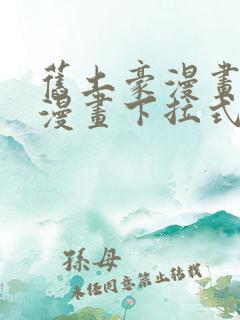 舊土豪漫畫
漫畫下拉式
孫母
未经同意禁止转载